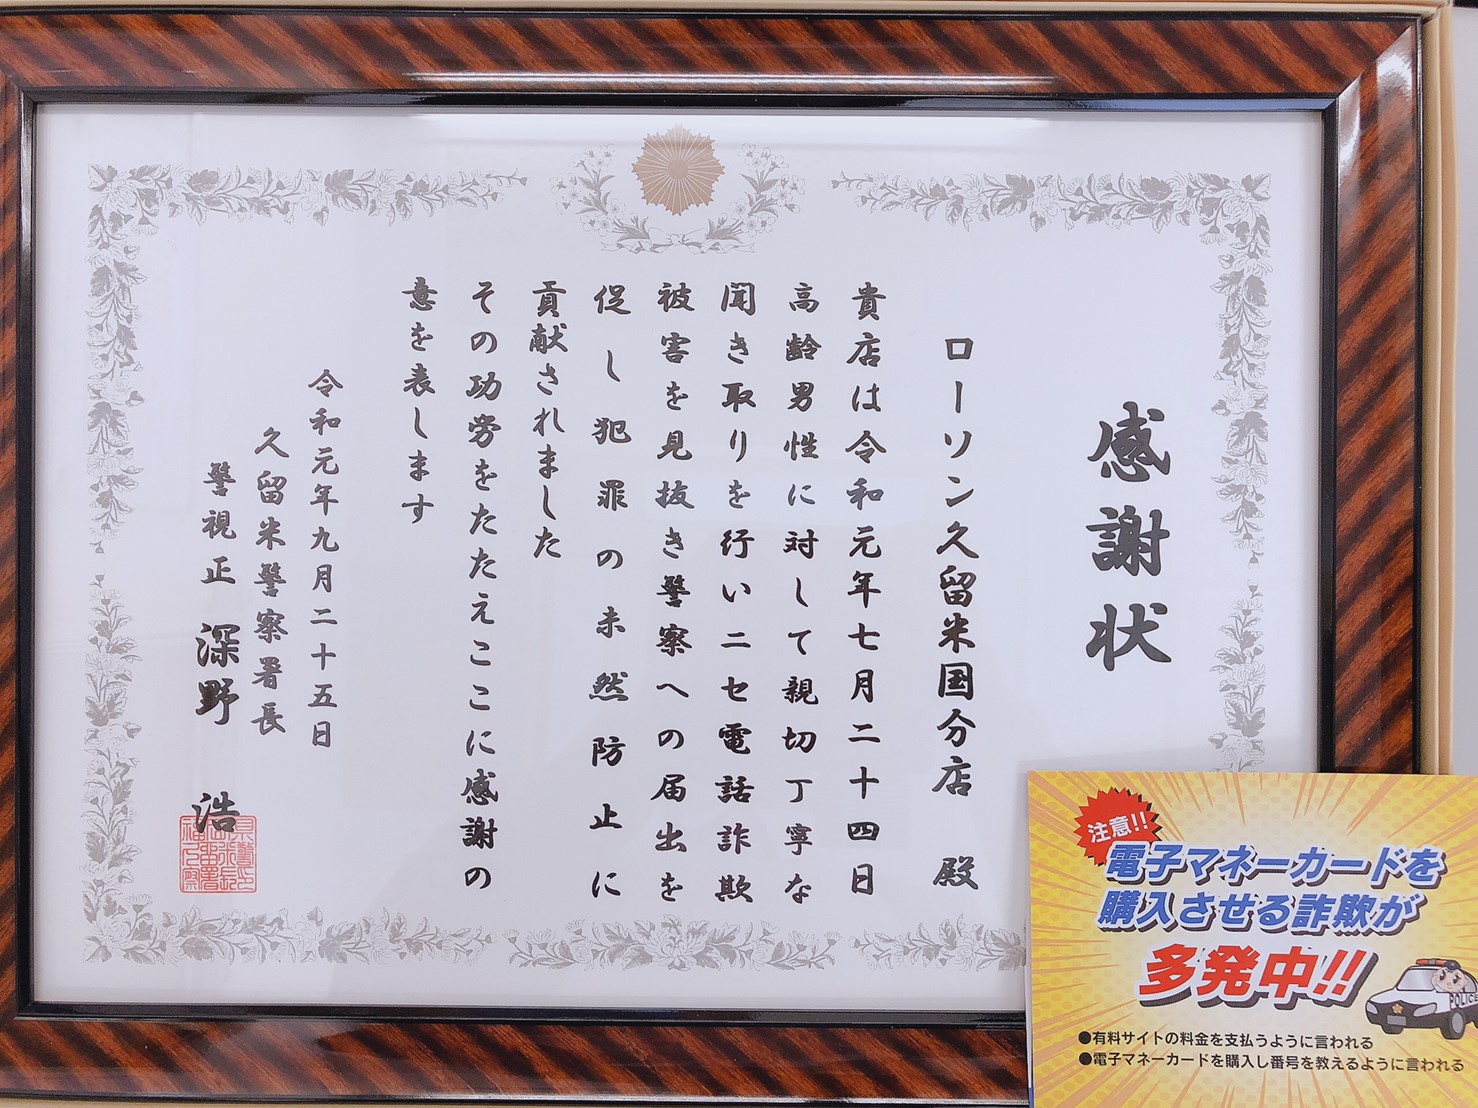 感謝状
ローソン久留米国分店 殿
貴店は令和元年七月二十四日
高齢男性に対して親切丁寧な
聞き取りを行いニセ電話詐欺
被害を見抜き警察への届出を
促し犯罪の未然防止に
貢献されました
その功労をたたえここに感謝の
意を表します
令和元年九月二十五日
久留米警察署長
警視正 深野 浩
注意!!
電子マネーカードを
購入させる詐欺が
多発中!!
POLICE
●有料サイトの料金を支払うように言われる
●電子マネーカードを購入し番号を教えるように言われる